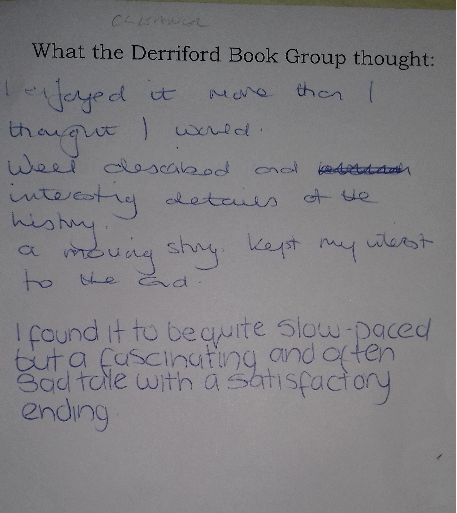 What the Derriford Book Group thought:
I enjoyed it more than I
thought I would.
Well described and
interesting details of the
history.
a moving story. Kept my interest
to the end.
I found it to be quite slow-paced
but a fascinating and often
sad tale with a satisfactory
ending